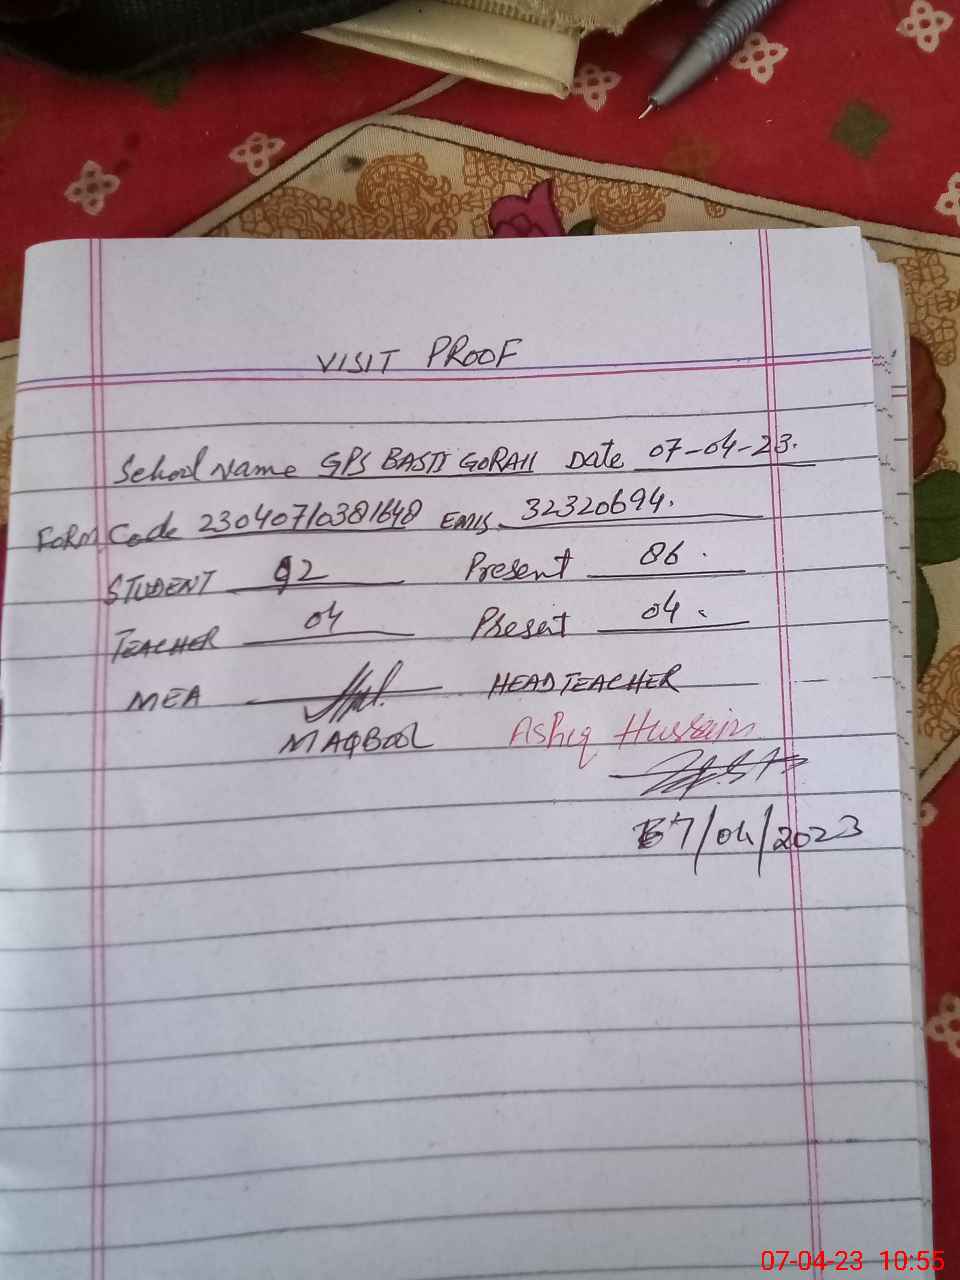 VISIT PROOF
School Name GPS BASTI GORAH Date 07-04-23.
FORM Code 23040710381648 EMIS 32320694.
STUDENT 92 Present 86.
TEACHER 04 Present 04.
MEA HEAD TEACHER
MAQBOOL Ashiq Hussain
07/04/2023
07-04-23 10:55